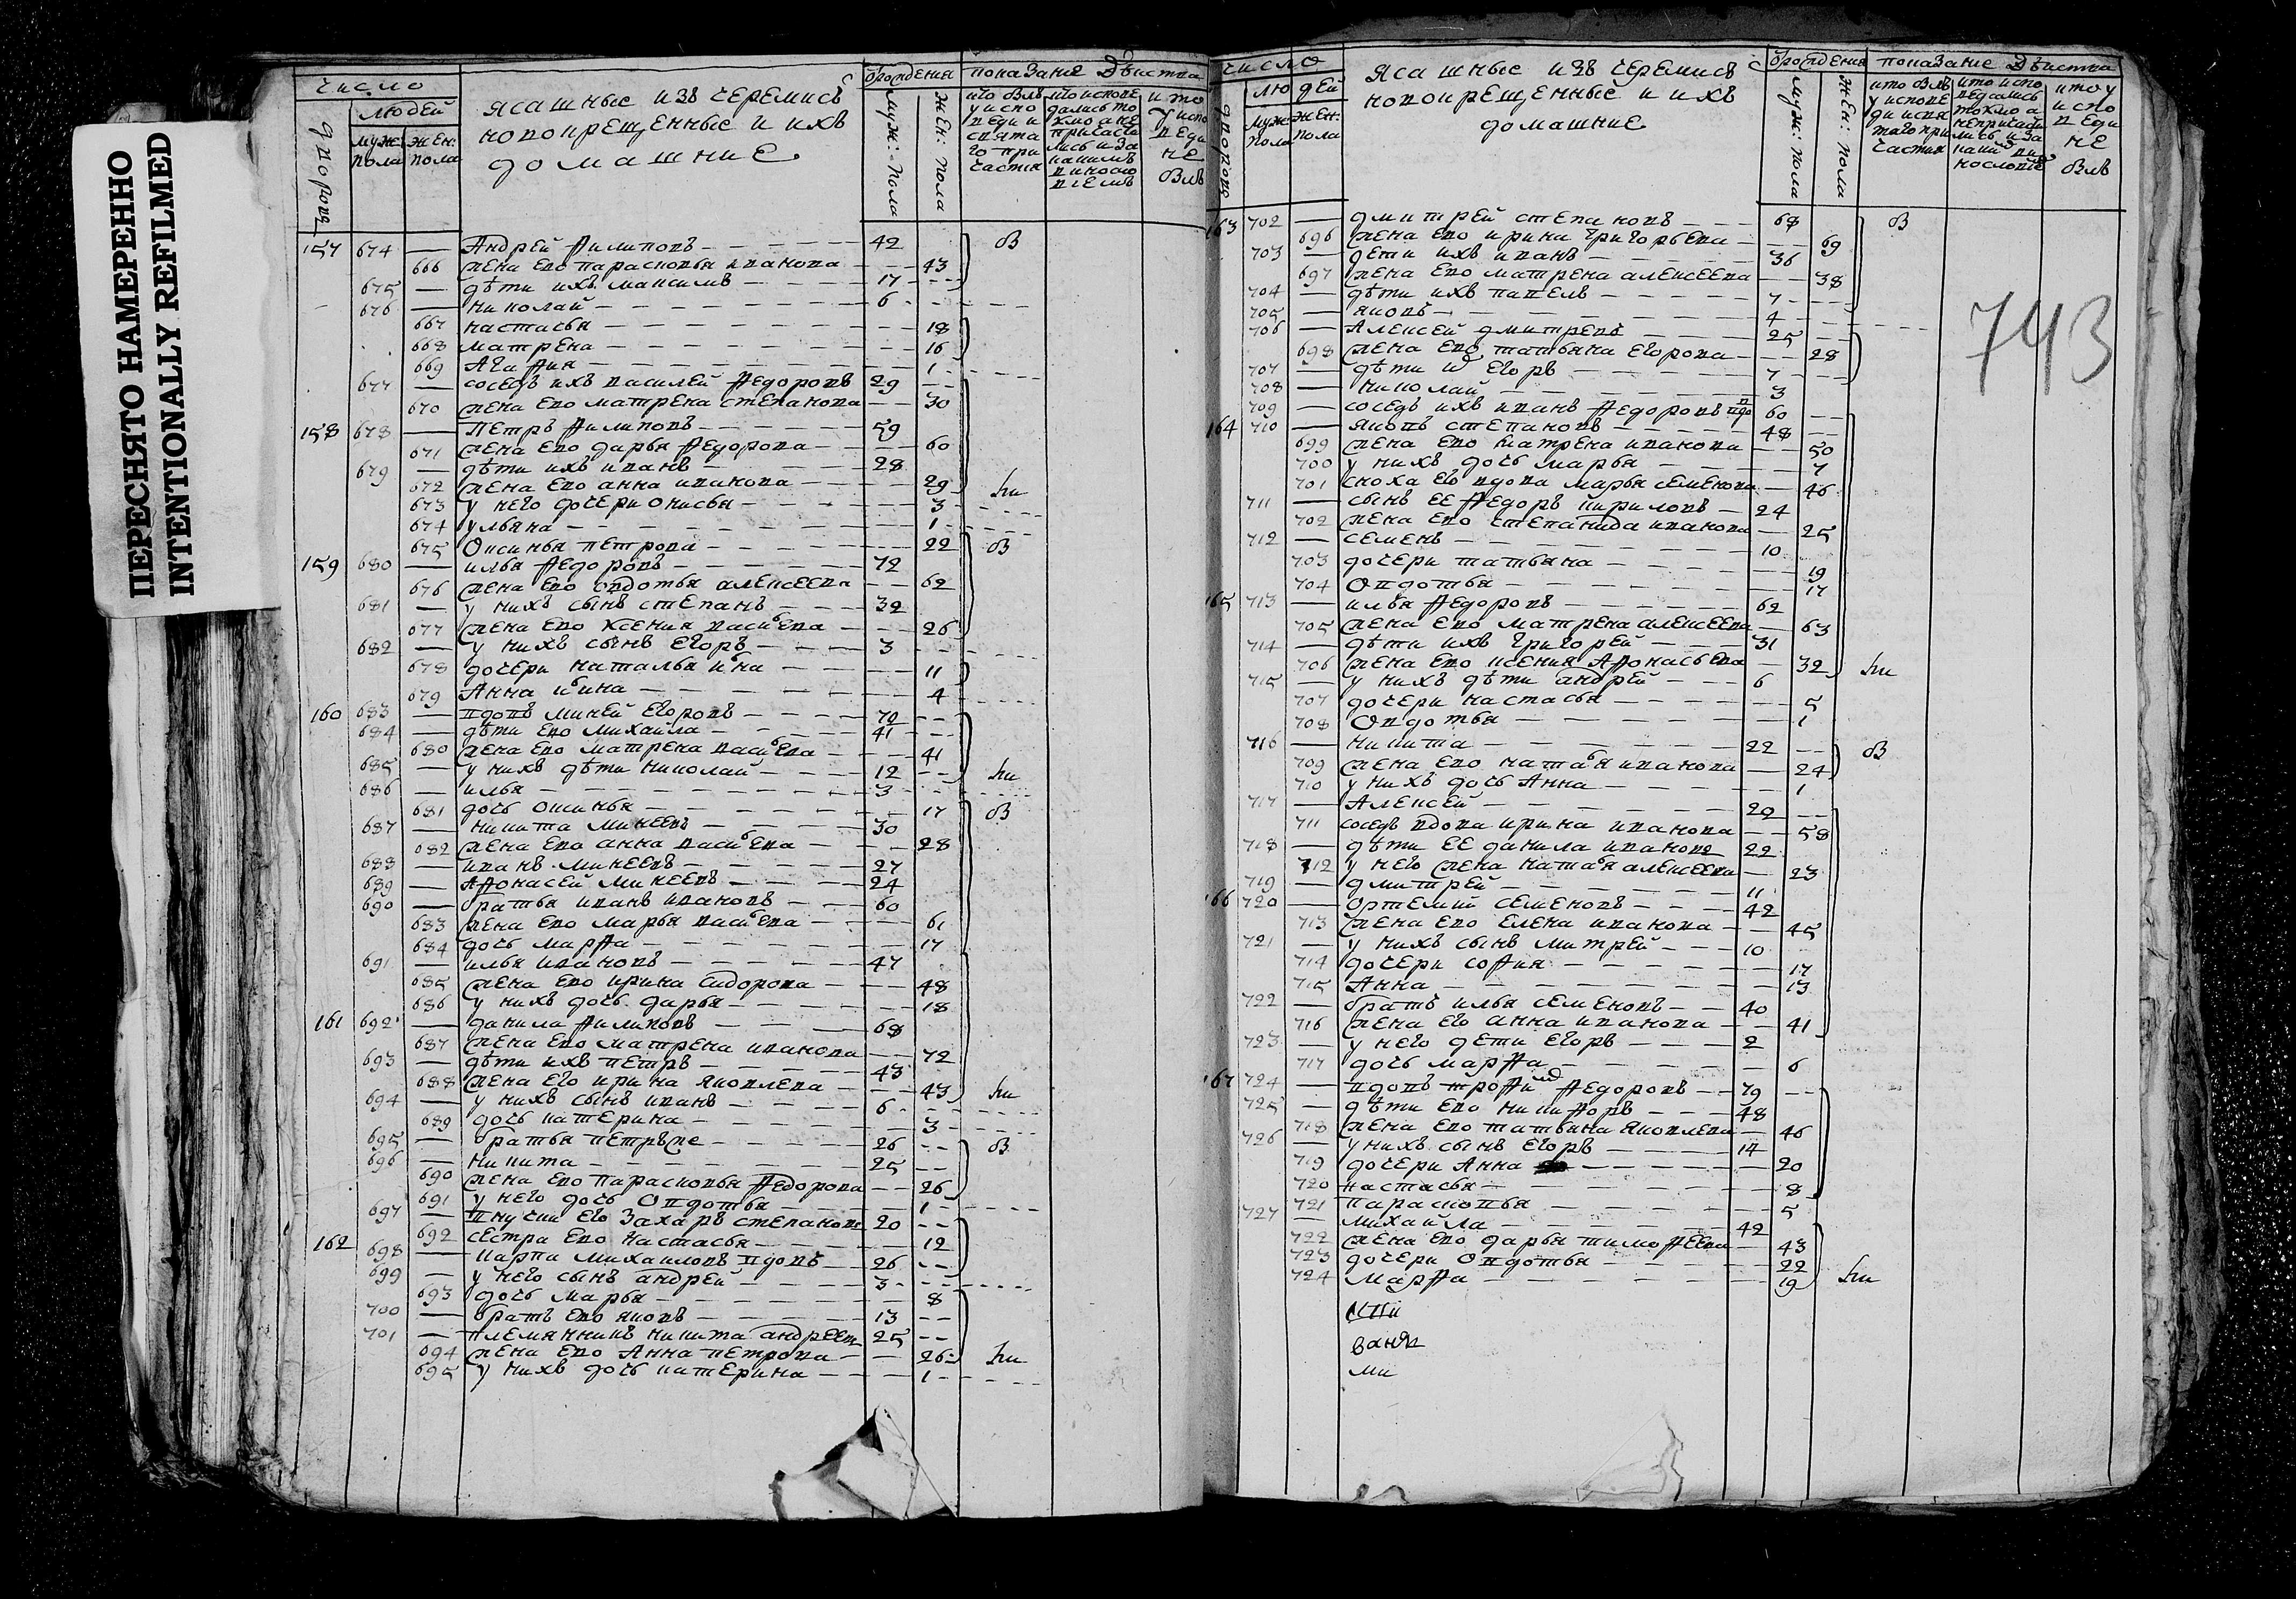 ПЕРЕСНЯТО НАМЕРЕННО
INTENTIONALLY REFILMED
число
людей
дворовъ
муж: пола
жен: пола
ясашные изъ черемисъ
новокрещенные и ихъ
домашние
с рождения
муж: пола
жен: пола
показание действа
157 674 — Андрей Филиповъ 42 Был
666 жена ево парасковья иванова 43
675 — дѣти ихъ максимъ 17
676 — николай 6
667 настасья 18
668 матрена 16
669 Агафия 1
677 — соседъ ихъ василей федоровъ 29
670 жена ево матрена степанова 30
158 678 — Петръ Филиповъ 59
671 жена ево дарья федорова 60
679 — дѣти ихъ иванъ 28
672 жена ево анна иванова 29
673 у него дочери онисья 3
674 ульяна 1
675 Оксинья петрова 22
159 680 — илья федоровъ 72
676 жена ево овдотья алексеева 62
681 — у нихъ сынъ степанъ 32
677 жена ево ксения василева 26
682 — у нихъ сынъ егоръ 3
678 дочери наталья 11
679 Анна 4
160 683 — вдовъ миней егоровъ 70
684 — дѣти ево михайла 41
680 жена ево матрена василева 41
685 — у нихъ дѣти николай 12
686 — илья 3
681 дочь оксинья 17
687 — никита минеевъ 30
682 жена ево анна василева 28
688 — иванъ минеевъ 27
689 — Афонасей минеевъ 24
690 — братья иванъ ивановъ 60
683 жена ево марья василева 61
684 дочь марфа 17
691 — илья ивановъ 47
685 жена ево ирина сидорова 48
686 у нихъ дочь дарья 18
161 692 — данила филиповъ 68
687 жена ево матрена иванова 72
693 — дѣти ихъ петръ 43
688 жена его ирина яковлева 43
694 — у нихъ сынъ иванъ 6
689 дочь катерина 3
695 — братья петръ же 26
696 — никита 25
690 жена ево парасковья федорова 26
691 у него дочь овдотья 1
697 — внучик его захаръ степановъ 20
692 сестра ево настасья 12
162 698 — карпа михаиловъ вдовъ 26
699 — у него сынъ андрей 3
693 дочь марья 8
700 — братъ ево яковъ 13
701 — племянникъ никита андреевъ 25
694 жена ево Анна петрова 26
695 у нихъ дочь катерина 1
число
людей
дворовъ
муж: пола
жен: пола
ясашные изъ черемисъ
новокрещенные и ихъ
домашние
с рождения
муж: пола
жен: пола
показание действа
743
163 702 — дмитрей степановъ 68
696 жена ево ирина григорьева 69
703 — дети ихъ иванъ 36
697 жена ево матрена алексеева 38
704 — дѣти ихъ павелъ 7
705 — яковъ 4
706 — Алексей дмитревъ 25
698 жена ево татьяна егорова 28
707 — дѣти егоръ 7
708 — николай 3
709 — соседъ ихъ иванъ федоровъ 60
164 710 — яковъ степановъ 48
699 жена ево матрена иванова 50
700 у нихъ дочь марья 7
701 сноха его вдова марья семенова 46
711 — сынъ ее федоръ кириловъ 24
702 жена ево степанида иванова 25
712 — семенъ 10
703 дочери татьяна 19
704 Овдотья 17
165 713 — илья федоровъ 62
705 жена ево матрена алексеева 63
714 — дѣти ихъ григорей 31
706 жена ево ксения Афонасьева 32
715 — у нихъ дѣти андрей 6
707 дочери настасья 5
708 Овдотья 1
716 — никита 22
709 жена ево наталя иванова 24
710 у нихъ дочь Анна 1
717 — Алексей 20
711 соседъ вдова ирина иванова 58
718 — дѣти ее данила ивановъ 22
712 у него жена наталя алексеева 23
719 — дмитрей 11
166 720 — Ортемий семеновъ 42
713 жена ево елена иванова 45
721 — у нихъ сынъ митрей 10
714 дочери софия 17
715 Анна 13
722 — братъ илья семеновъ 40
716 жена его анна иванова 41
723 — у него дети егоръ 2
717 дочь марфа 6
167 724 — вдовъ трофимъ федоровъ 79
725 — дѣти ево никифоръ 48
718 жена ево татьяна яковлева 46
726 — у нихъ сынъ егоръ 14
719 дочери Анна 20
720 настасья 8
721 парасковья 5
727 — михайла 42
722 жена ево дарья тимофеева 43
723 дочери овдотья 22
724 марфа 19